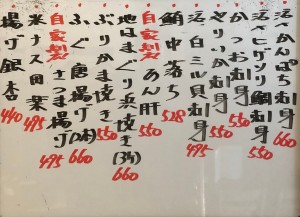 活かんぱち刺身 660
活ヒゲソリ鯛刺身 550
かつお刺身 550
やりいか刺身 550
活白ミル貝刺身 495
鮪中落ち 528
自家製あん肝 550
地はまぐり浜焼き(3ヶ) 660
ぶりかま焼き 550
ふぐ唐揚げ 660
自家製さつま揚げ 495
米ナス田楽 495
揚げ銀杏 440